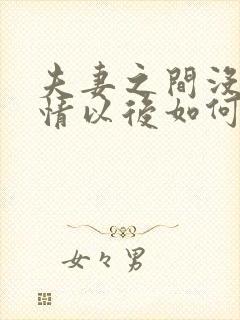 夫妻之間沒
情以後如何
女々男